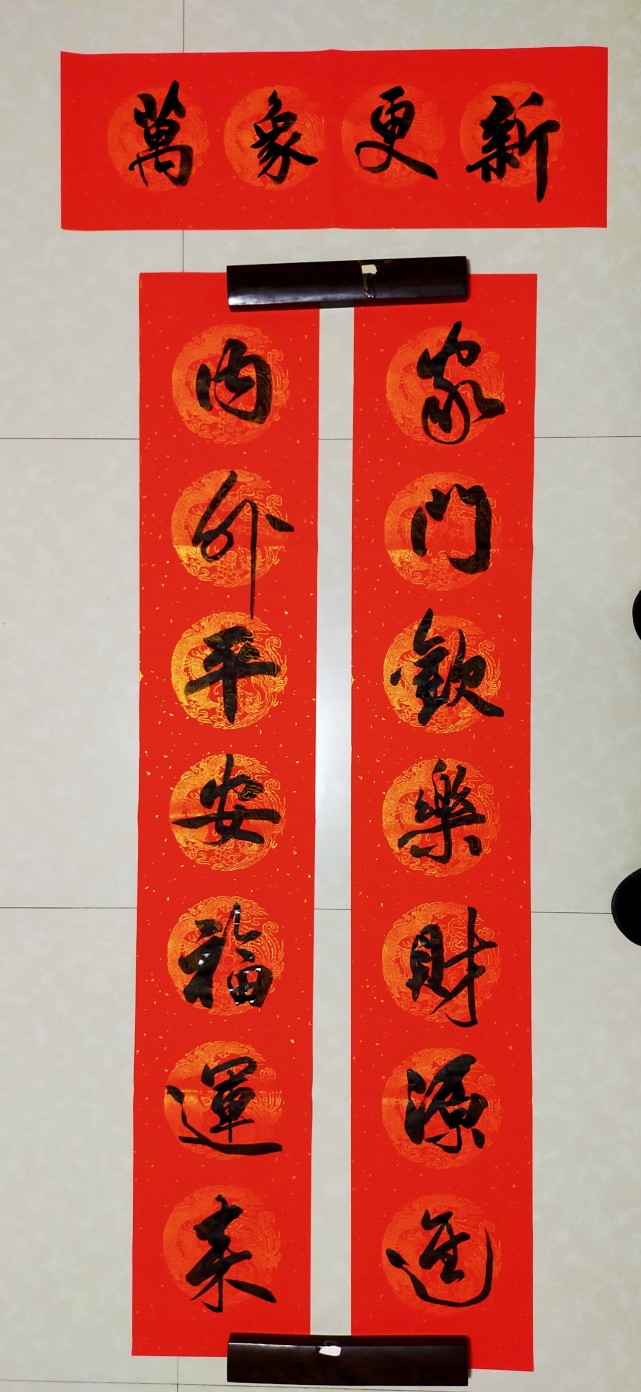 萬象更新
家門歡樂財源進
內外平安福運來